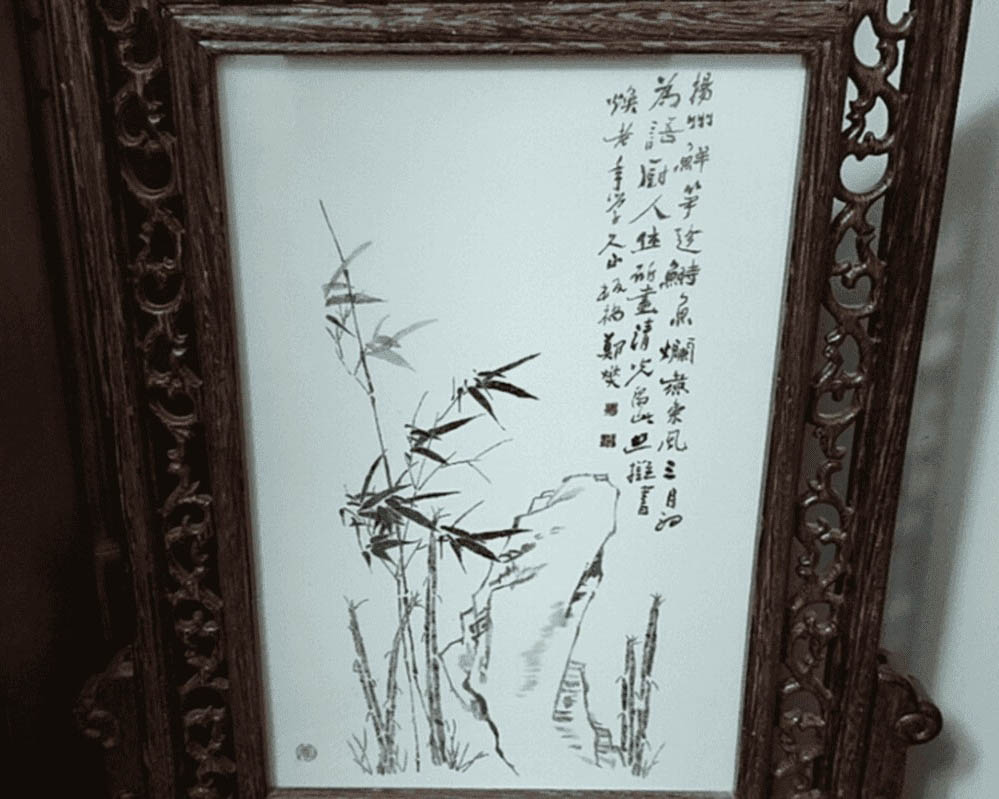 揚州鮮筍趁鰣魚爛煮春風三月初
為語廚人休斫盡清光留此照攤書
煥老年學 板橋鄭燮